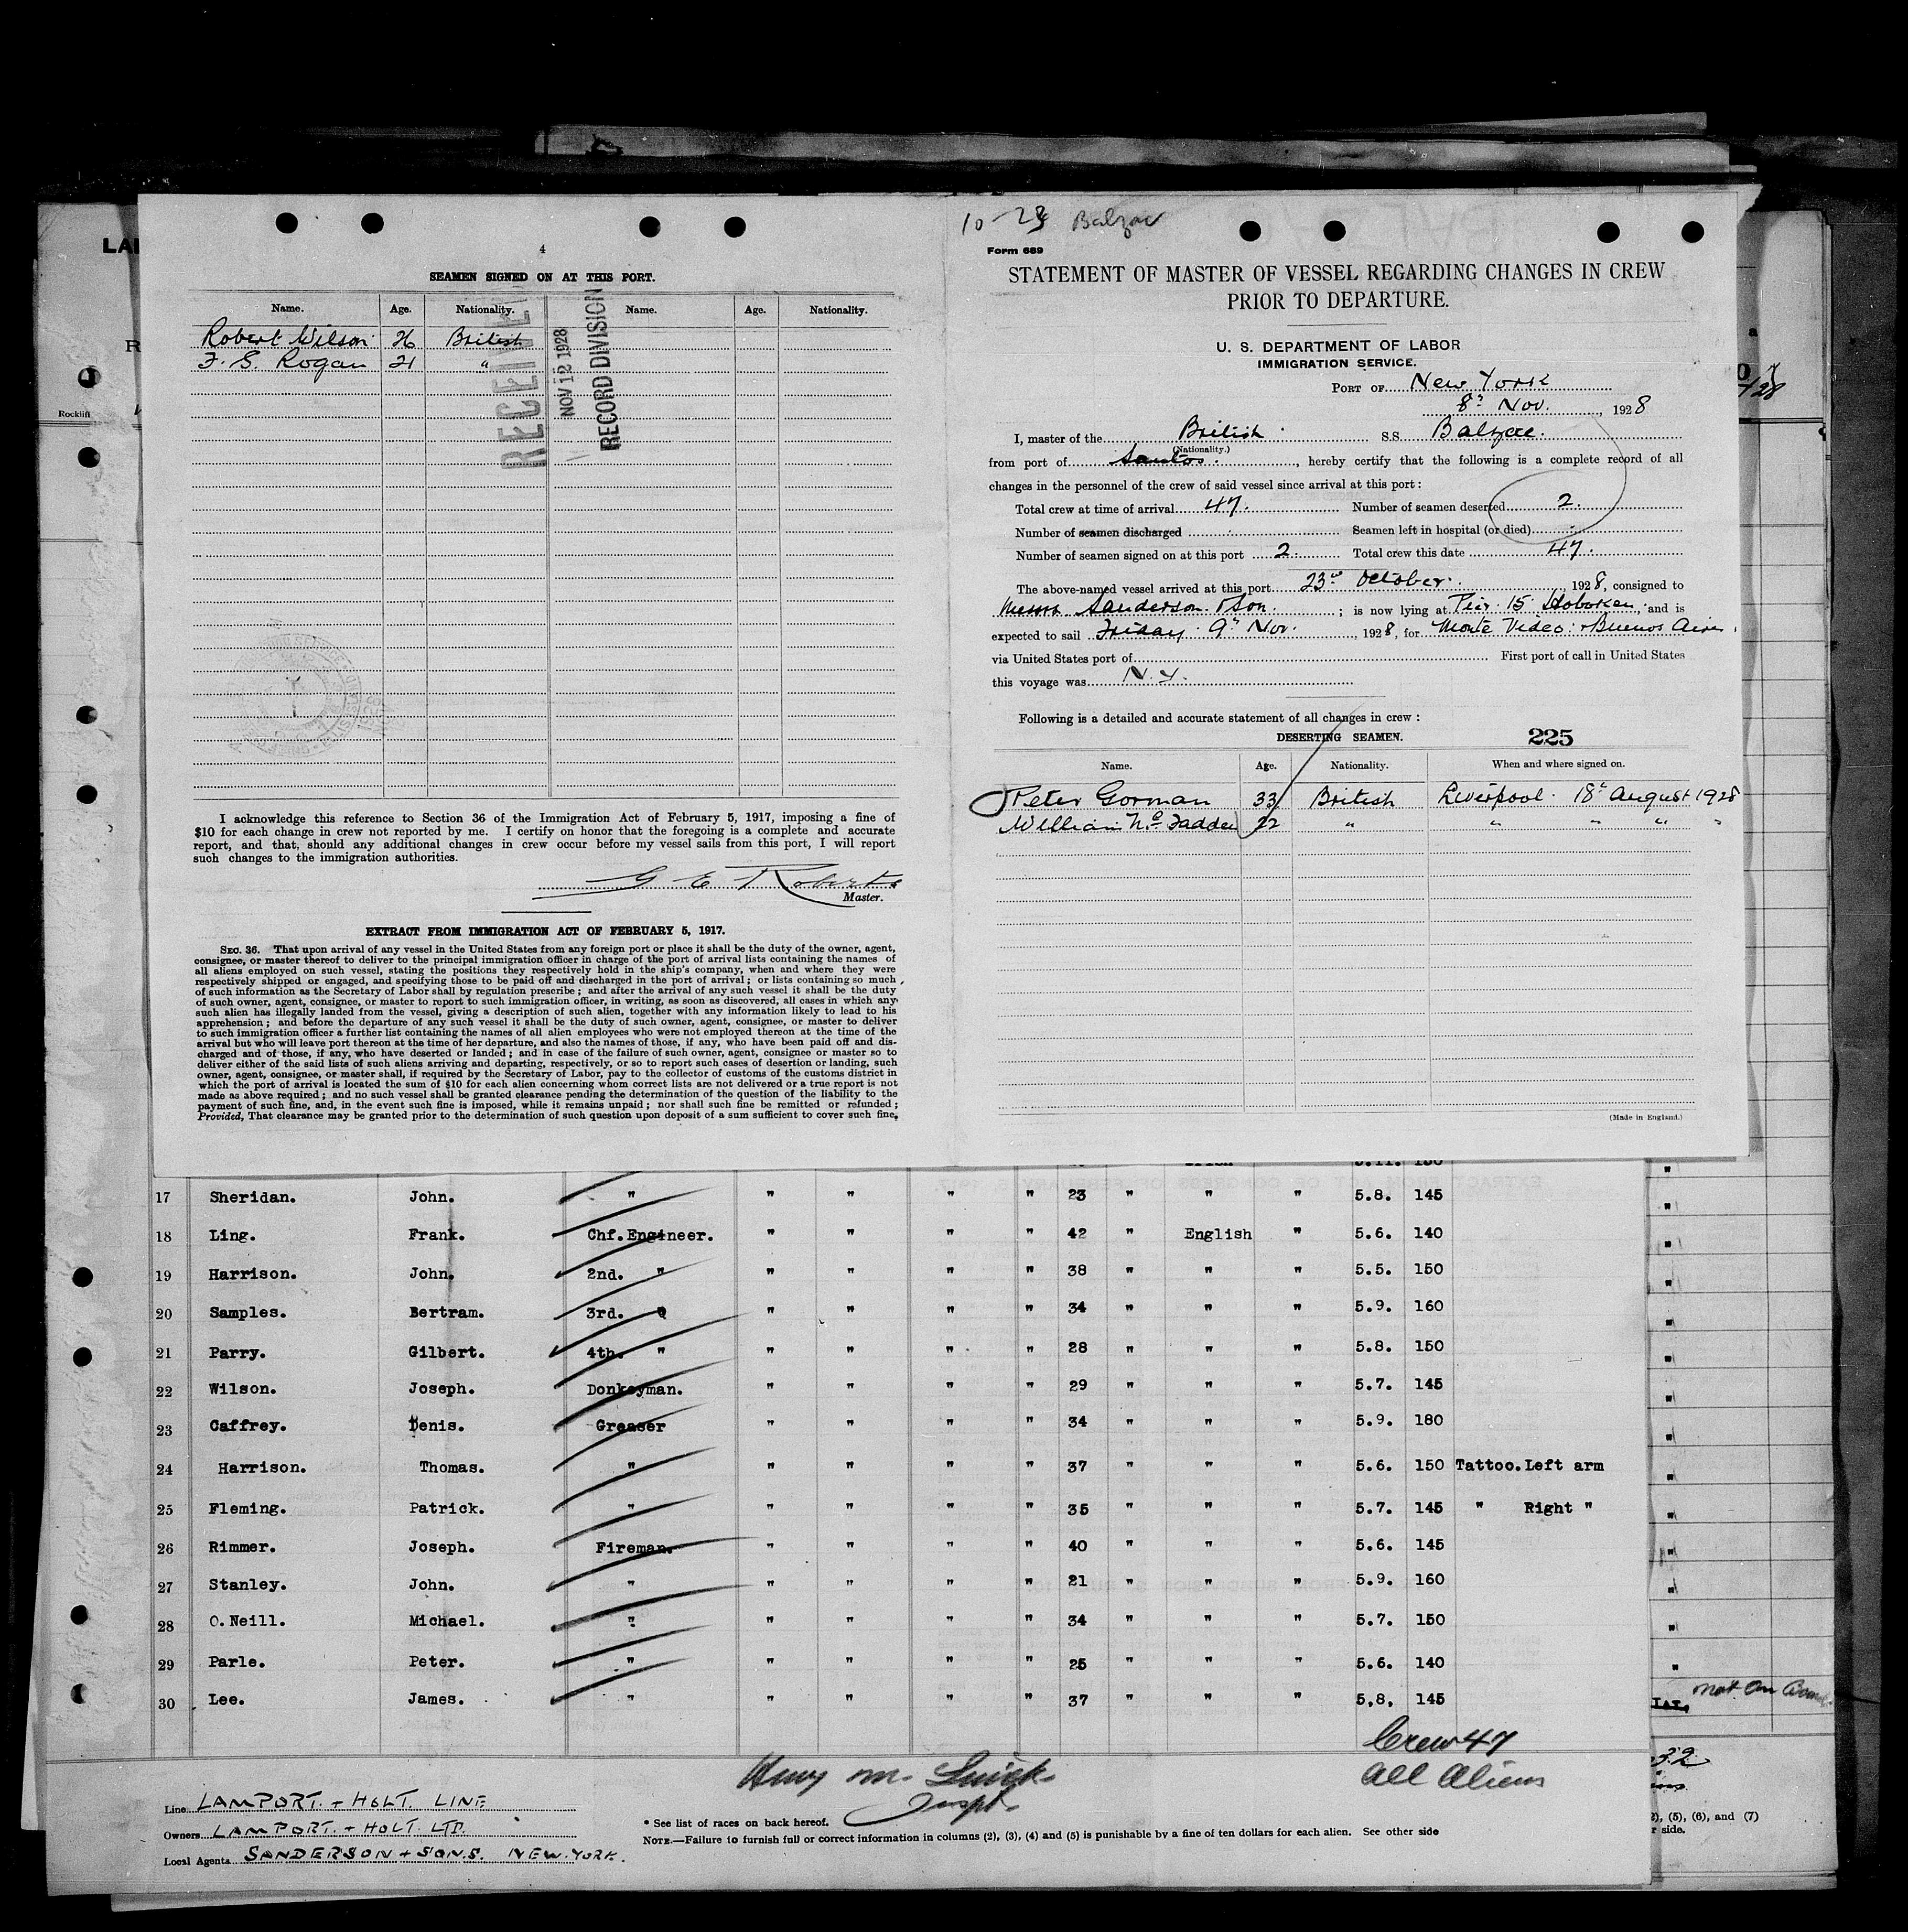 4
SEAMEN SIGNED ON AT THIS PORT.
Name. Age. Nationality. Name. Age. Nationality.
Robert Wilson 26 British
F. S. Rogan 21 "
RECEIVED
NOV 12 1928
RECORD DIVISION
I acknowledge this reference to Section 36 of the Immigration Act of February 5, 1917, imposing a fine of
$10 for each change in crew not reported by me. I certify on honor that the foregoing is a complete and accurate
report, and that, should any additional changes in crew occur before my vessel sails from this port, I will report
such changes to the immigration authorities.
G E Roberts
Master.
EXTRACT FROM IMMIGRATION ACT OF FEBRUARY 5, 1917.
SEC. 36. That upon arrival of any vessel in the United States from any foreign port or place it shall be the duty of the owner, agent,
consignee, or master thereof to deliver to the principal immigration officer in charge of the port of arrival lists containing the names of
all aliens employed on such vessel, stating the positions they respectively hold in the ship's company, when and where they were
respectively shipped or engaged, and specifying those to be paid off and discharged in the port of arrival; or lists containing so much
of such information as the Secretary of Labor shall by regulation prescribe; and after the arrival of any such vessel it shall be the duty
of such owner, agent, consignee, or master to report to such immigration officer, in writing, as soon as discovered, all cases in which any
such alien has illegally landed from the vessel, giving a description of such alien, together with any information likely to lead to his
apprehension; and before the departure of any such vessel it shall be the duty of such owner, agent, consignee, or master to deliver
to such immigration officer a further list containing the names of all alien employees who were not employed thereon at the time of the
arrival but who will leave port thereon at the time of her departure, and also the names of those, if any, who have been paid off and dis-
charged and of those, if any, who have deserted or landed; and in case of the failure of such owner, agent, consignee or master so to
deliver either of the said lists of such aliens arriving and departing, respectively, or so to report such cases of desertion or landing, such
owner, agent, consignee, or master shall, if required by the Secretary of Labor, pay to the collector of customs of the customs district in
which the port of arrival is located the sum of $10 for each alien concerning whom correct lists are not delivered or a true report is not
made as above required; and no such vessel shall be granted clearance pending the determination of the question of the liability to the
payment of such fine, and, in the event such fine is imposed, while it remains unpaid; nor shall such fine be remitted or refunded;
Provided, That clearance may be granted prior to the determination of such question upon deposit of a sum sufficient to cover such fine.
10-23 Balzac
Form 689
STATEMENT OF MASTER OF VESSEL REGARDING CHANGES IN CREW
PRIOR TO DEPARTURE.
U. S. DEPARTMENT OF LABOR
IMMIGRATION SERVICE.
PORT OF New York
8th Nov. , 1928
I, master of the British S.S. Balzac.
(Nationality.)
from port of Santos. , hereby certify that the following is a complete record of all
changes in the personnel of the crew of said vessel since arrival at this port:
Total crew at time of arrival 47. Number of seamen deserted 2.
Number of seamen discharged Seamen left in hospital (or died)
Number of seamen signed on at this port 2. Total crew this date 47.
The above-named vessel arrived at this port 23rd October. , 1928, consigned to
Messrs Sanderson & Son. ; is now lying at Pier 15 Hoboken, and is
expected to sail Friday 9th Nov. , 1928, for Monte Video & Buenos Aires.
via United States port of First port of call in United States
this voyage was N.Y.
Following is a detailed and accurate statement of all changes in crew:
DESERTING SEAMEN. 225
Name. Age. Nationality. When and where signed on.
Peter Gorman 33 British Liverpool. 18th August 1928
William McFadden 22 " " " " "
(Made in England.)
17 Sheridan. John. " " " " " 23 " " " 5.8. 145
18 Ling. Frank. Chf.Engineer. " " " " 42 " English " 5.6. 140
19 Harrison. John. 2nd. " " " " " 38 " " " 5.5. 150
20 Samples. Bertram. 3rd. " " " " " 34 " " " 5.9. 160
21 Parry. Gilbert. 4th. " " " " " 28 " " " 5.8. 150
22 Wilson. Joseph. Donkeyman. " " " " 29 " " " 5.7. 145
23 Caffrey. Denis. Greaser " " " " 34 " " " 5.9. 180
24 Harrison. Thomas. " " " " " 37 " " " 5.6. 150 Tattoo.Left arm
25 Fleming. Patrick. " " " " " 35 " " " 5.7. 145 " Right "
26 Rimmer. Joseph. Fireman. " " " " 40 " " " 5.6. 145
27 Stanley. John. " " " " " 21 " " " 5.9. 160
28 O.Neill. Michael. " " " " " 34 " " " 5.7. 150
29 Parle. Peter. " " " " " 25 " " " 5.6. 140
30 Lee. James. " " " " " 37 " " " 5,8, 145
not on
Crew 47
All Aliens
32
Henry M.
Inspt.
Line LAMPORT + HOLT LINE
Owners LAMPORT + HOLT LTD.
Local Agents SANDERSON + SONS. NEW YORK.
* See list of races on back hereof.
NOTE.—Failure to furnish full or correct information in columns (2), (3), (4) and (5) is punishable by a fine of ten dollars for each alien. See other side
(5), (6), and (7)
side.
Rocklift